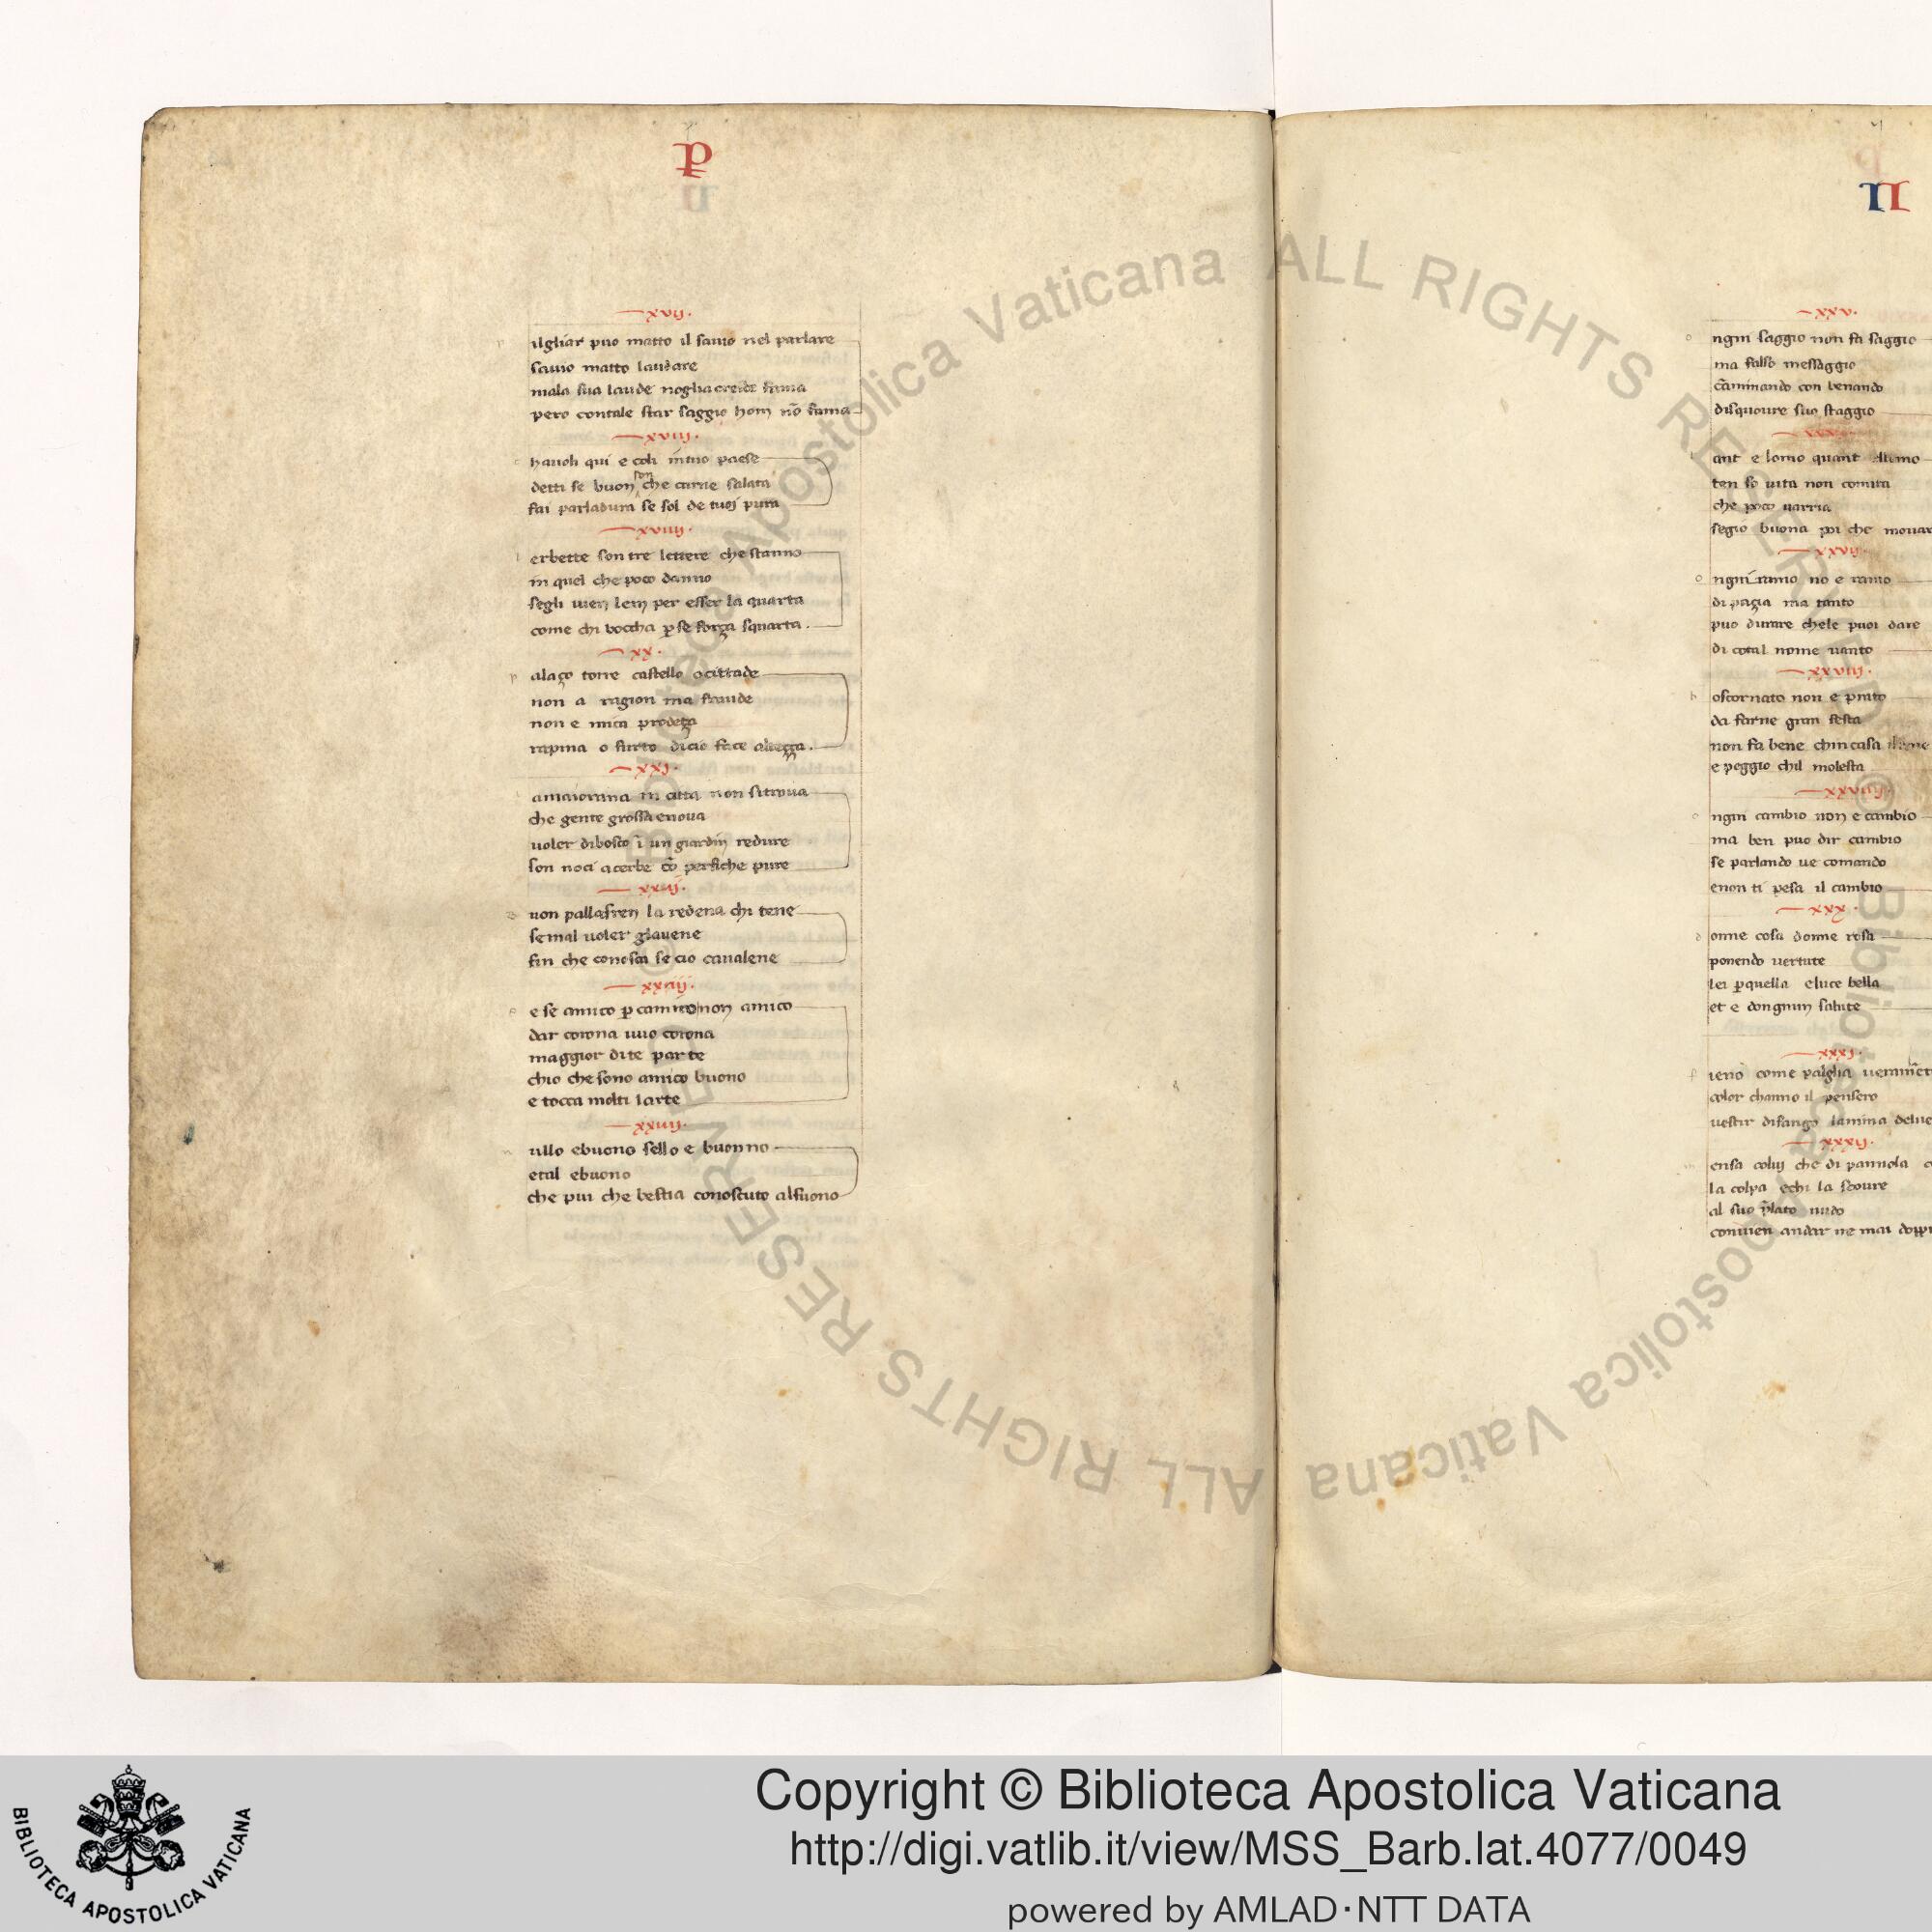 P
xvij.
ilgliar puo matto il sauio nel parlare
sauio matto laudare
mala sua laude noglia cresce fama
pero contale star saggio hom nō fama
xviij.
hauoli qui e coli in mio paese
detti se buon son che carne salata
fai parladura se sol de tuoj pura
xviiij.
erbette son tre lettere che stanno
in quel che poco danno
segli uien lem per esser la quarta
come chi boccha p se força squarta.
xx.
p alaço torre castello o cittade
non a ragion ma fraude
non e mica prodeça
rapina o furto di cio face alteçça.
xxj.
amaiorana in citta non si troua
che gente grossa e noua
uoler di bosco ī un giardin redure
son noci acerbe cō persiche pure
xxij.
uon pallafren la redena chi tene
se mal uoler gl auene
fin che conosca se cio caualene
xxiij.
e se amico p camino non amico
dar corona uno corona
maggior di te parte
chio che sono amico buono
e tocca molti larte
xxiiij.
ullo e buono sello e buonno
e tal e buono
che piu che bestia conosciuto al suono
II
xxv.
o ngni saggio non fa saggio
ma falso messaggio
cāminando con benando
disquoure suo staggio
ant e lomo quant
ten so uita non comita
che poco uarria
segio buona poi che
xxvij.
o ngni ramo no e ramo
di paçia ma tanto
puo durare chele puoi dare
di cotal nome uanto
xxviij.
b oscornato non e prato
da farne gran festa
non fa bene chin casa
e peggio chil molesta
xxviiij.
o ngni cambio non e cambio
ma ben puo dir cambio
se parlando ue comando
e non ti pesa il cambio
xxx.
d onne cosa donne rosa
ponendo uertute
lei p quella e luce bella
et e dongnun salute
xxxj.
f ieno come palglia
color channo il pensero
uestir di fango lamina
xxxij.
ensa coluj che di pannola
la colpa e chi la scoure
al suo p̄lato nudo
conuien andar ne mai
© Biblioteca Apostolica Vaticana ALL RIGHTS RESERVED
© Biblioteca Apostolica Vaticana ALL RIGHTS RESERVED
BIBLIOTECA APOSTOLICA VATICANA
Copyright © Biblioteca Apostolica Vaticana
http://digi.vatlib.it/view/MSS_Barb.lat.4077/0049
powered by AMLAD·NTT DATA